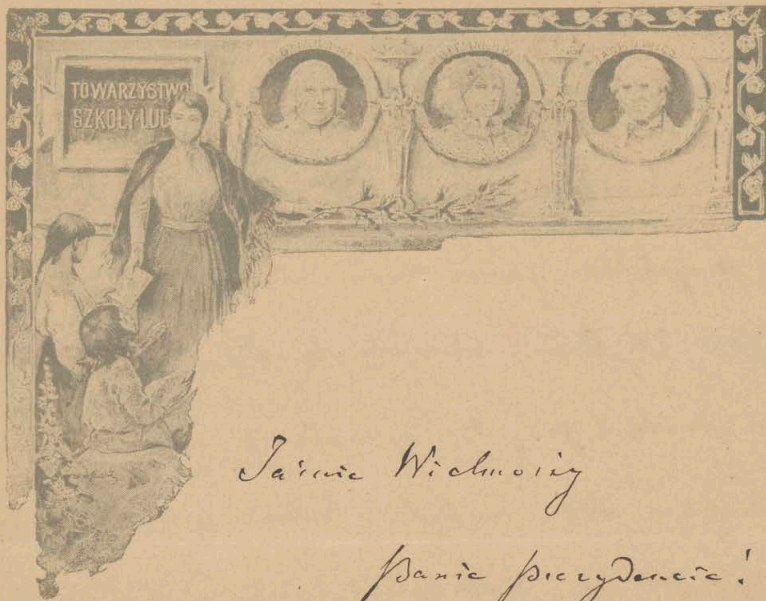 TOWARZYSTWO
SZKOŁY·LUD
Jaśnie Wielmożny
Panie Prezydencie!